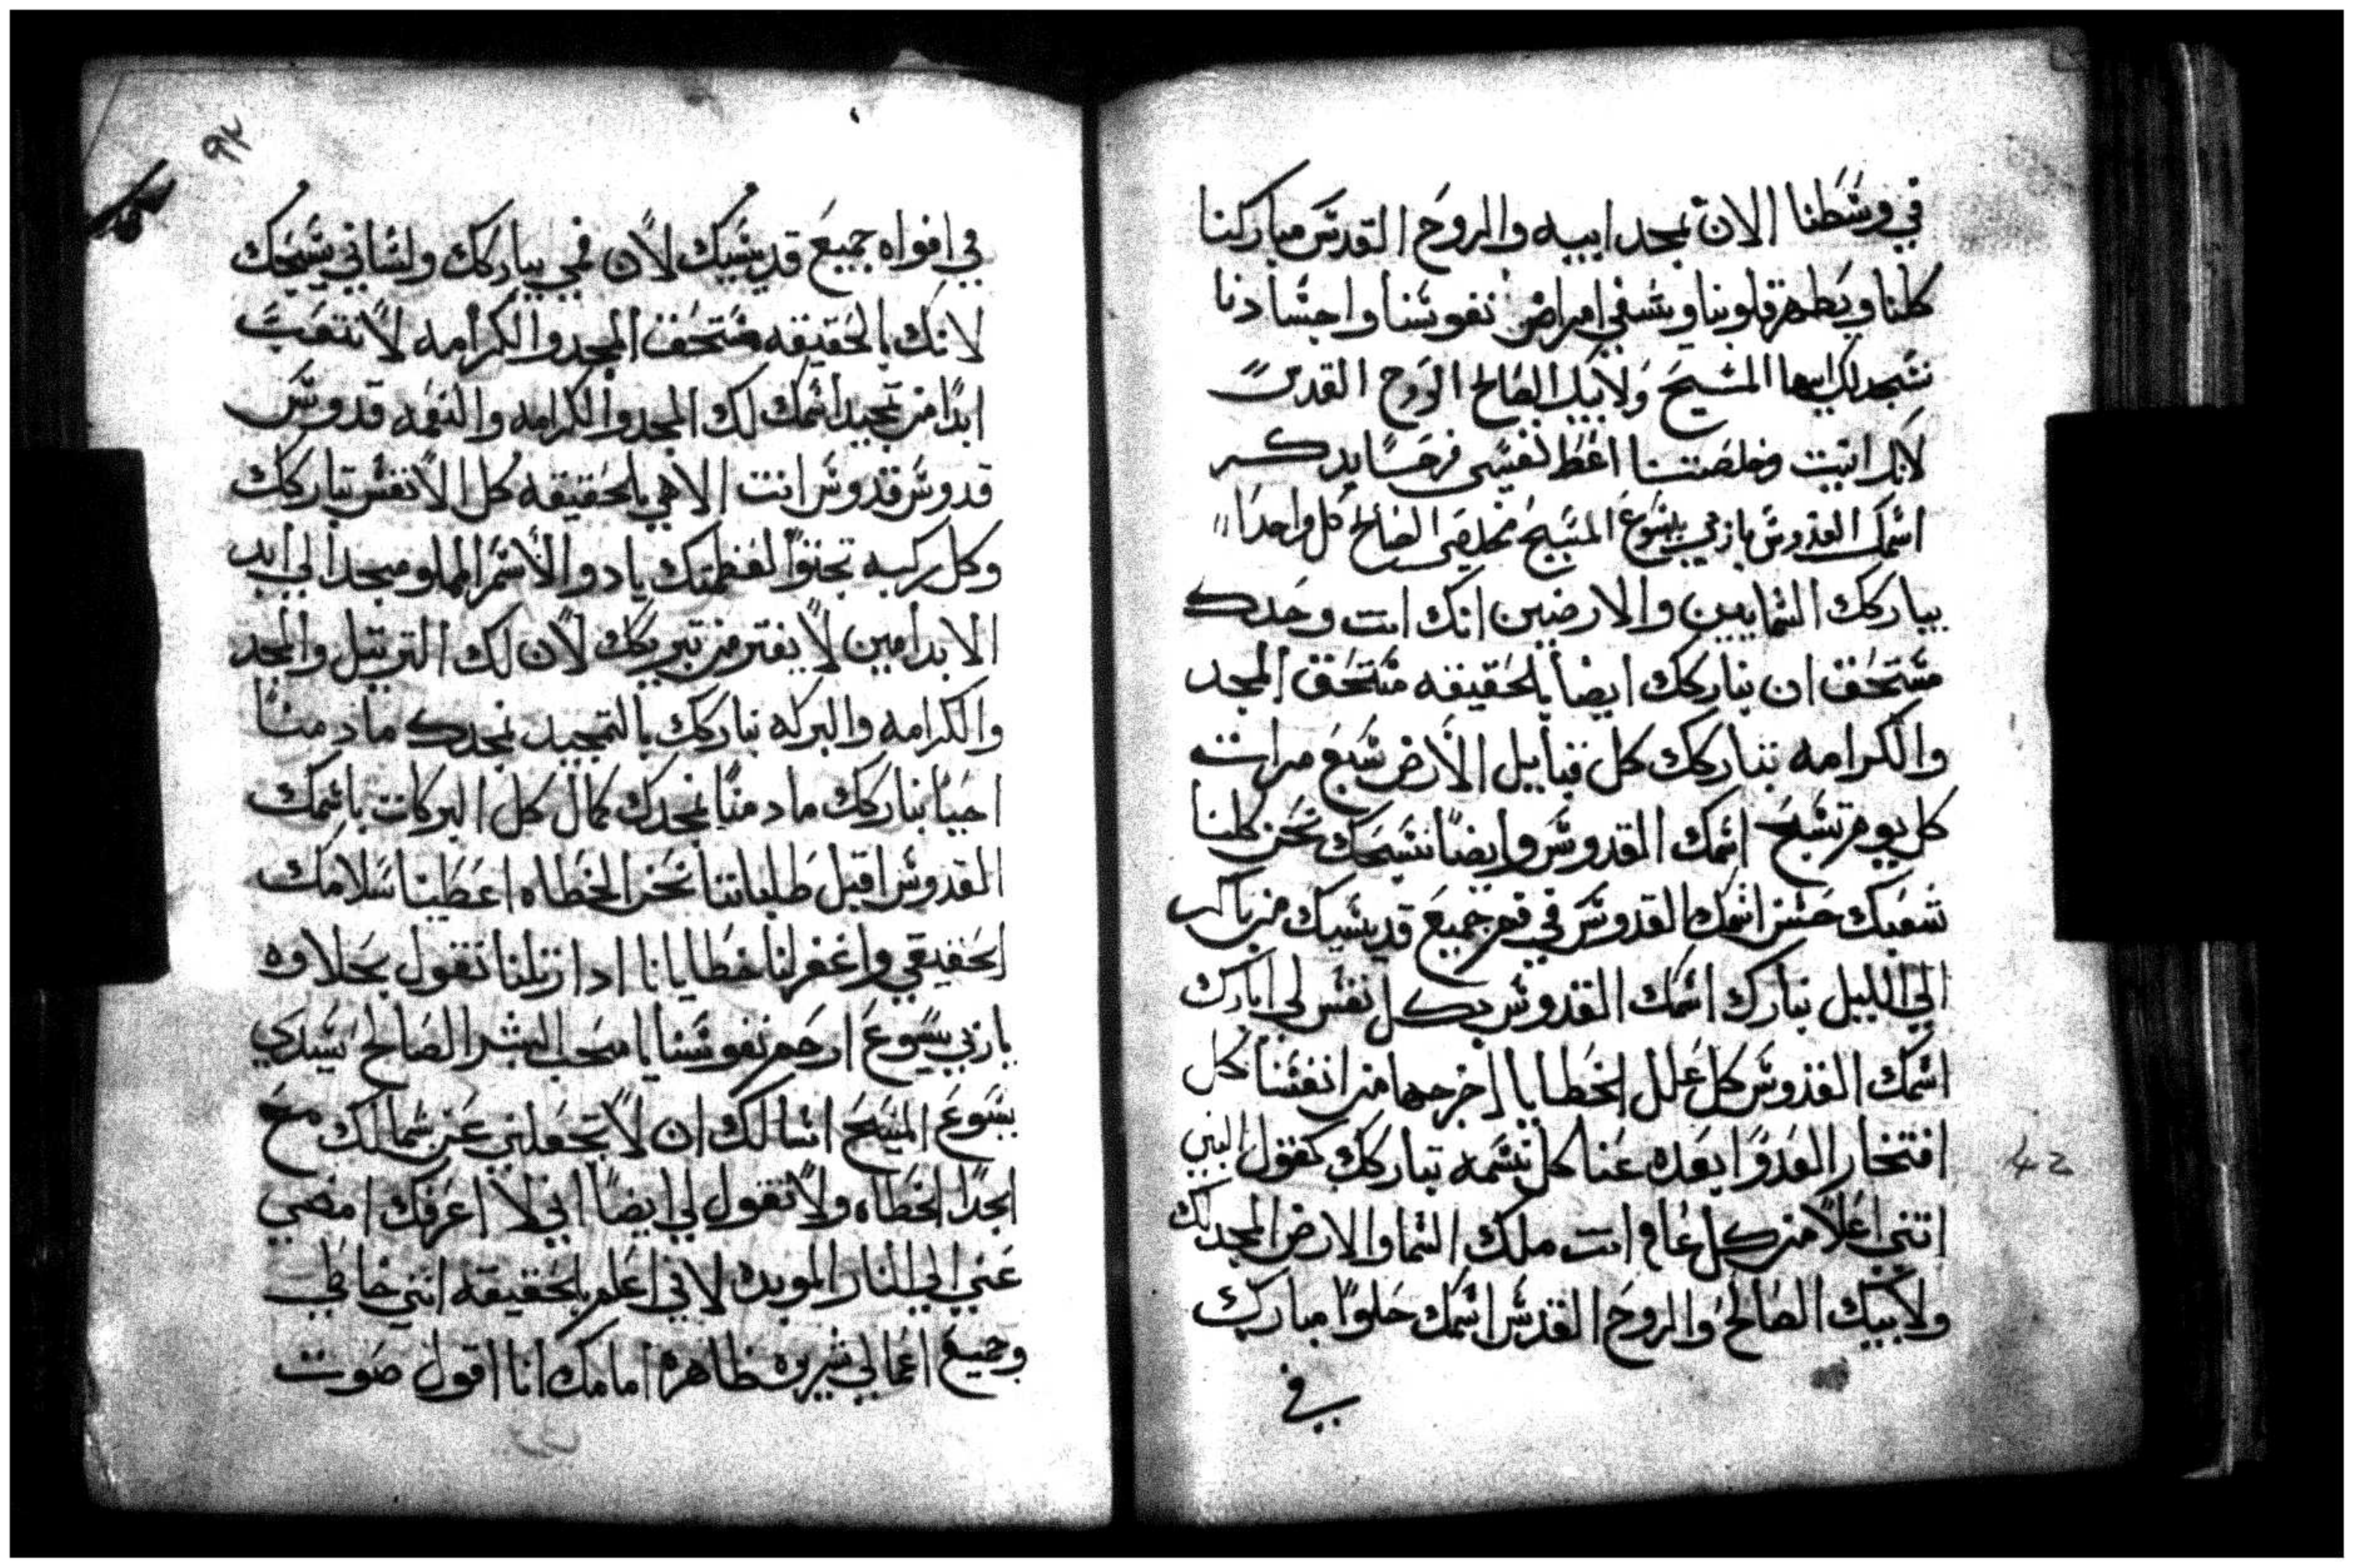 في وسطنا الان بمجد ابيه والروح القدس مباركنا
كلنا ويطهر قلوبنا ويشفي امراض نفوسنا واجسادنا
نسجد لك ايها المسيح ولابيك الصالح الروح القدس
لانك اتيت وخلصتنا اعط نفسي فرحا بدكر
اسمك القدوس ياربي يسوع المسيح مخلصي الصالح كل واحدا
يباركك السمايين والارضين انك انت وحدك
مستحق ان نباركك ايضا بالحقيقه مستحق المجد
والكرامه تباركك كل قبايل الارض سبع مرات
كل يوم نسبح اسمك القدوس وايضا نسبحك نحن كلنا
شعبك حسن اسمك القدوس في فم جميع قديسيك من باكر
الي الليل نبارك اسمك القدوس بكل نفس لي ابارك
اسمك القدوس كل علل الخطايا اخرجها من انفسنا كل
افتخار العدوا بعده عنا كل نسمه تباركك كقول النبي
انتني اعلا من كل عال وانت ملك السما والارض المجد لك
ولابيك الصالح والروح القدس اسمك حلوا مبارك
في
٩٢
في افواه جميع قديسيك لان فمي يباركك ولساني يسبحك
لانك بالحقيقه مستحق المجد والكرامه لا نتعب
ابدا من تمجيد اسمك لك المجد والكرامه والنعمه قدوس
قدوس قدوس انت الاهي بالحقيقه كل الانفس تباركك
وكل ركبه تجثوا لعظمتك يا دو الاسم المملو مجد الي ابد
الابد امين لا يفتر من تبريكك لان لك الترتيل والمجد
والكرامه والبركه نباركك بالتمجيد نمجدك ما دمنا
احيا نباركك ما دمنا نمجدك كمال كل البركات باسمك
القدوس اقبل طلباتنا نحن الخطاه اعطينا سلامك
الحقيقي واغفر لنا خطايانا ادا زللنا نقول بحلاوه
ياربي يسوع ارحم نفوسنا يا محب البشر الصالح يسيدي
يسوع المسيح اسالك ان لا تجعلني عن شمالك مع
الجدا الخطاه ولا تقول لي ايضا اني لا اعرفك امضي
عني الي النار الموبده لاني اعلم بالحقيقه انني خاطي
وجميع اعمالي شريره ظاهره امامك انا اقول صوت